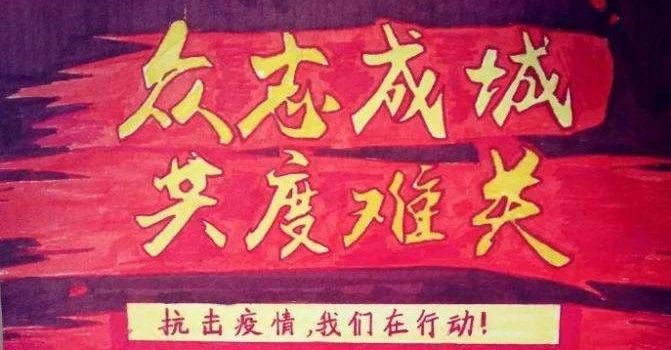 众志成城
共度难关
抗击疫情,我们在行动!